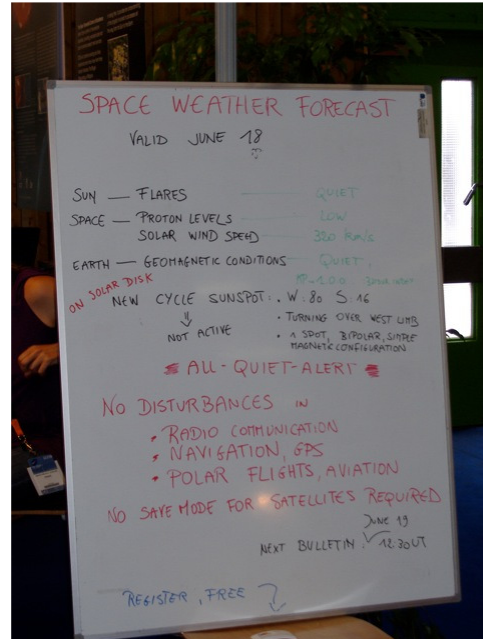 SPACE WEATHER FORECAST
VALID JUNE 18
SUN — FLARES — QUIET
SPACE — PROTON LEVELS — LOW
SOLAR WIND SPEED — 320 km/s
EARTH — GEOMAGNETIC CONDITIONS — QUIET,
ON SOLAR DISK
NEW CYCLE SUNSPOT: • W:80 S:16
⇓ • TURNING OVER WEST LIMB
NOT ACTIVE • 1 SPOT, BIPOLAR, SIMPLE
MAGNETIC CONFIGURATION
ALL-QUIET-ALERT
NO DISTURBANCES IN
• RADIO COMMUNICATION
• NAVIGATION, GPS
• POLAR FLIGHTS, AVIATION
NO SAVE MODE FOR SATELLITES REQUIRED
JUNE 19
NEXT BULLETIN: 12:30UT
REGISTER, FREE